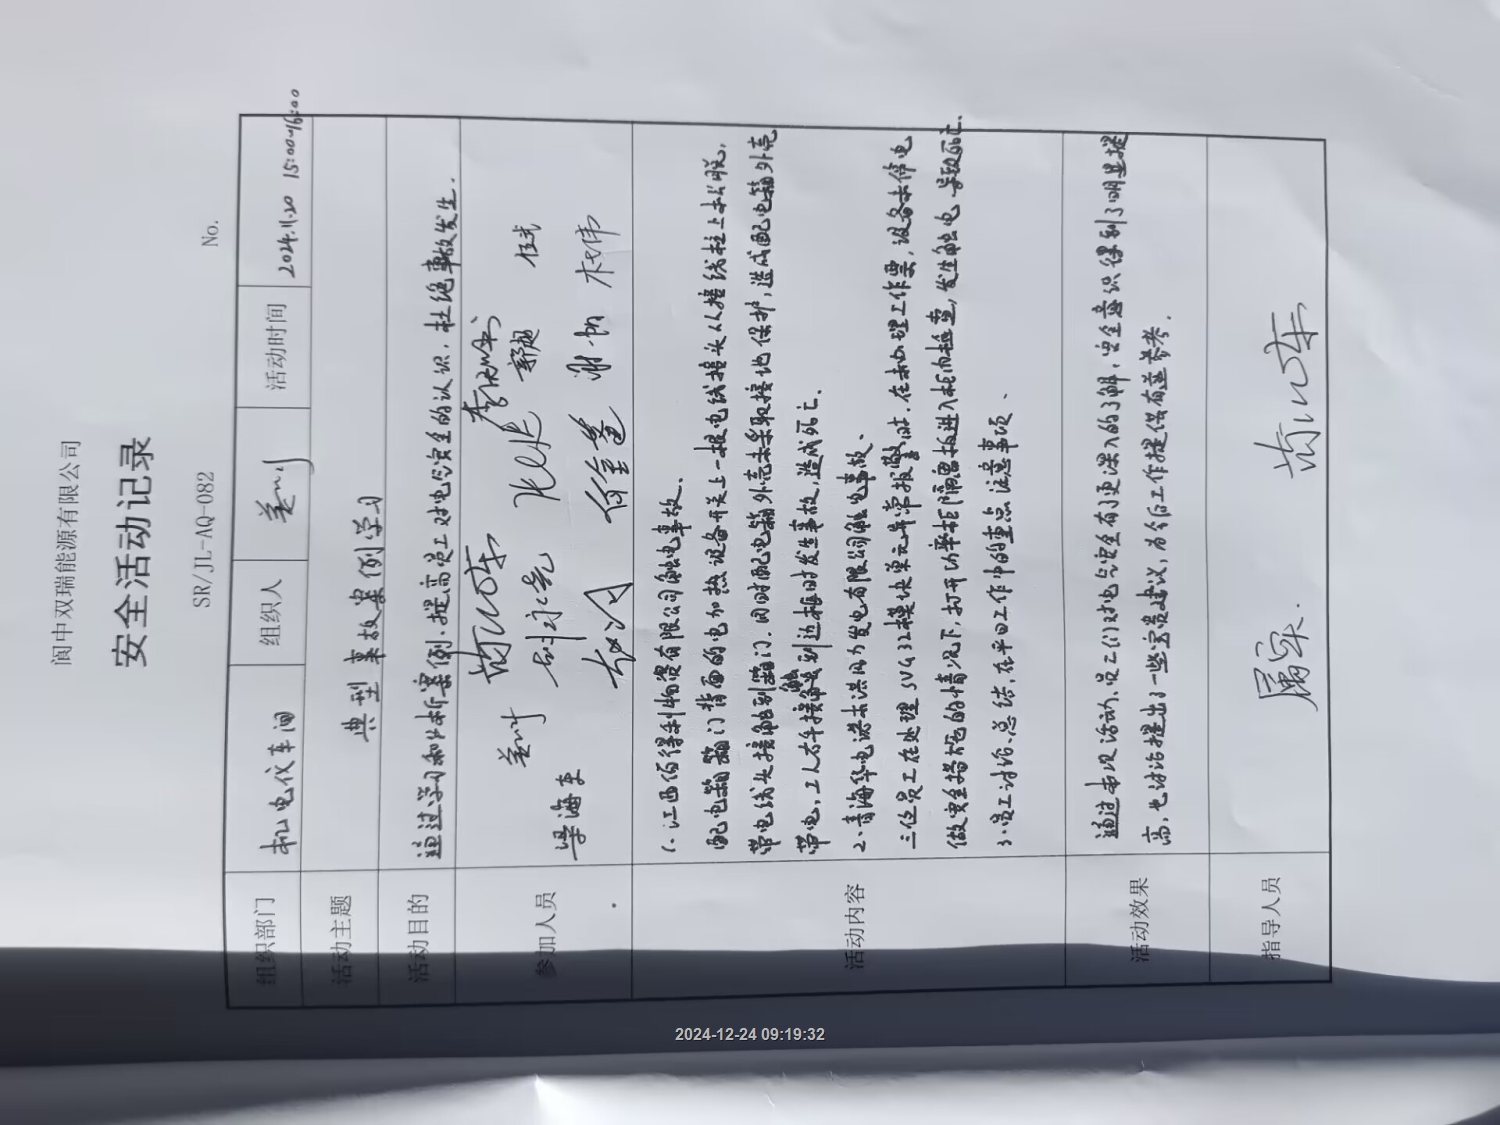 阆中双瑞能源有限公司
安全活动记录
SR/JL-AQ-082 No.
组织部门 机电仪车间 组织人 活动时间 2024.11.20 15:00-16:00
活动主题 典型事故案例学习
活动目的 通过学习和分析案例,提高员工对电气安全的认识,杜绝事故发生.
参加人员
郭超 任武
梁海东 刘永亮
谢帆 杜伟
活动内容
1. 江西佰得利物资有限公司触电事故.
配电箱箱门背面的电加热设备开关上一根电线接头从接线柱上松脱,
带电线头接触到箱门.同时配电箱外壳未采取接地保护,造成配电箱外壳
带电,工人右手接触到边框时发生事故,造成死亡.
2、青海华电诺木洪风力发电有限公司触电事故、
三位员工在处理SVG 32模块单元异常报警时.在未办理工作票,设备未停电
做安全措施的情况下,打开功率柜隔离挡板进入柜内检查,发生触电,导致死亡.
3、员工讨论、总结,在平日工作中的重点注意事项、
活动效果
通过本次活动,员工们对电气安全有了更深入的了解,安全意识得到了明显提
高,也讨论提出了一些宝贵建议,为今后工作提供有益参考.
指导人员
2024-12-24 09:19:32